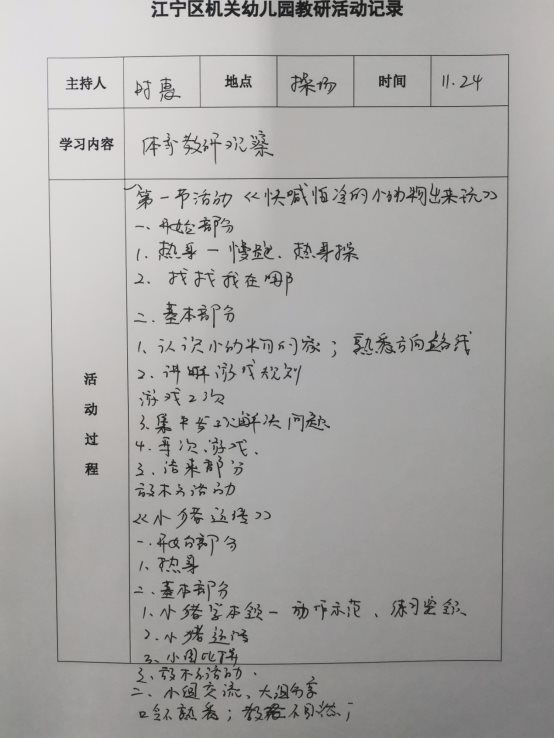 江宁区机关幼儿园教研活动记录
主持人 时惠 地点 操场 时间 11.24
学习内容 体育教研观察
活动过程
第一节活动《快喊怕冷的小动物出来玩》
一、开始部分
1、热身一慢跑、热身操
2、找找我在哪
二、基本部分
1、认识小动物的家；熟悉方向路线
2、讲解游戏规则
游戏2次
3.集中 解决问题
4.再次游戏、
3、结束部分
放松活动
《小猪运 》
一、开始部分
1、热身
二、基本部分
1、小猪学本领一动作示范、练习
2、小猪运
3、小组比拼
3、放松活动.
二、小组交流、大组分享
口令不熟悉；